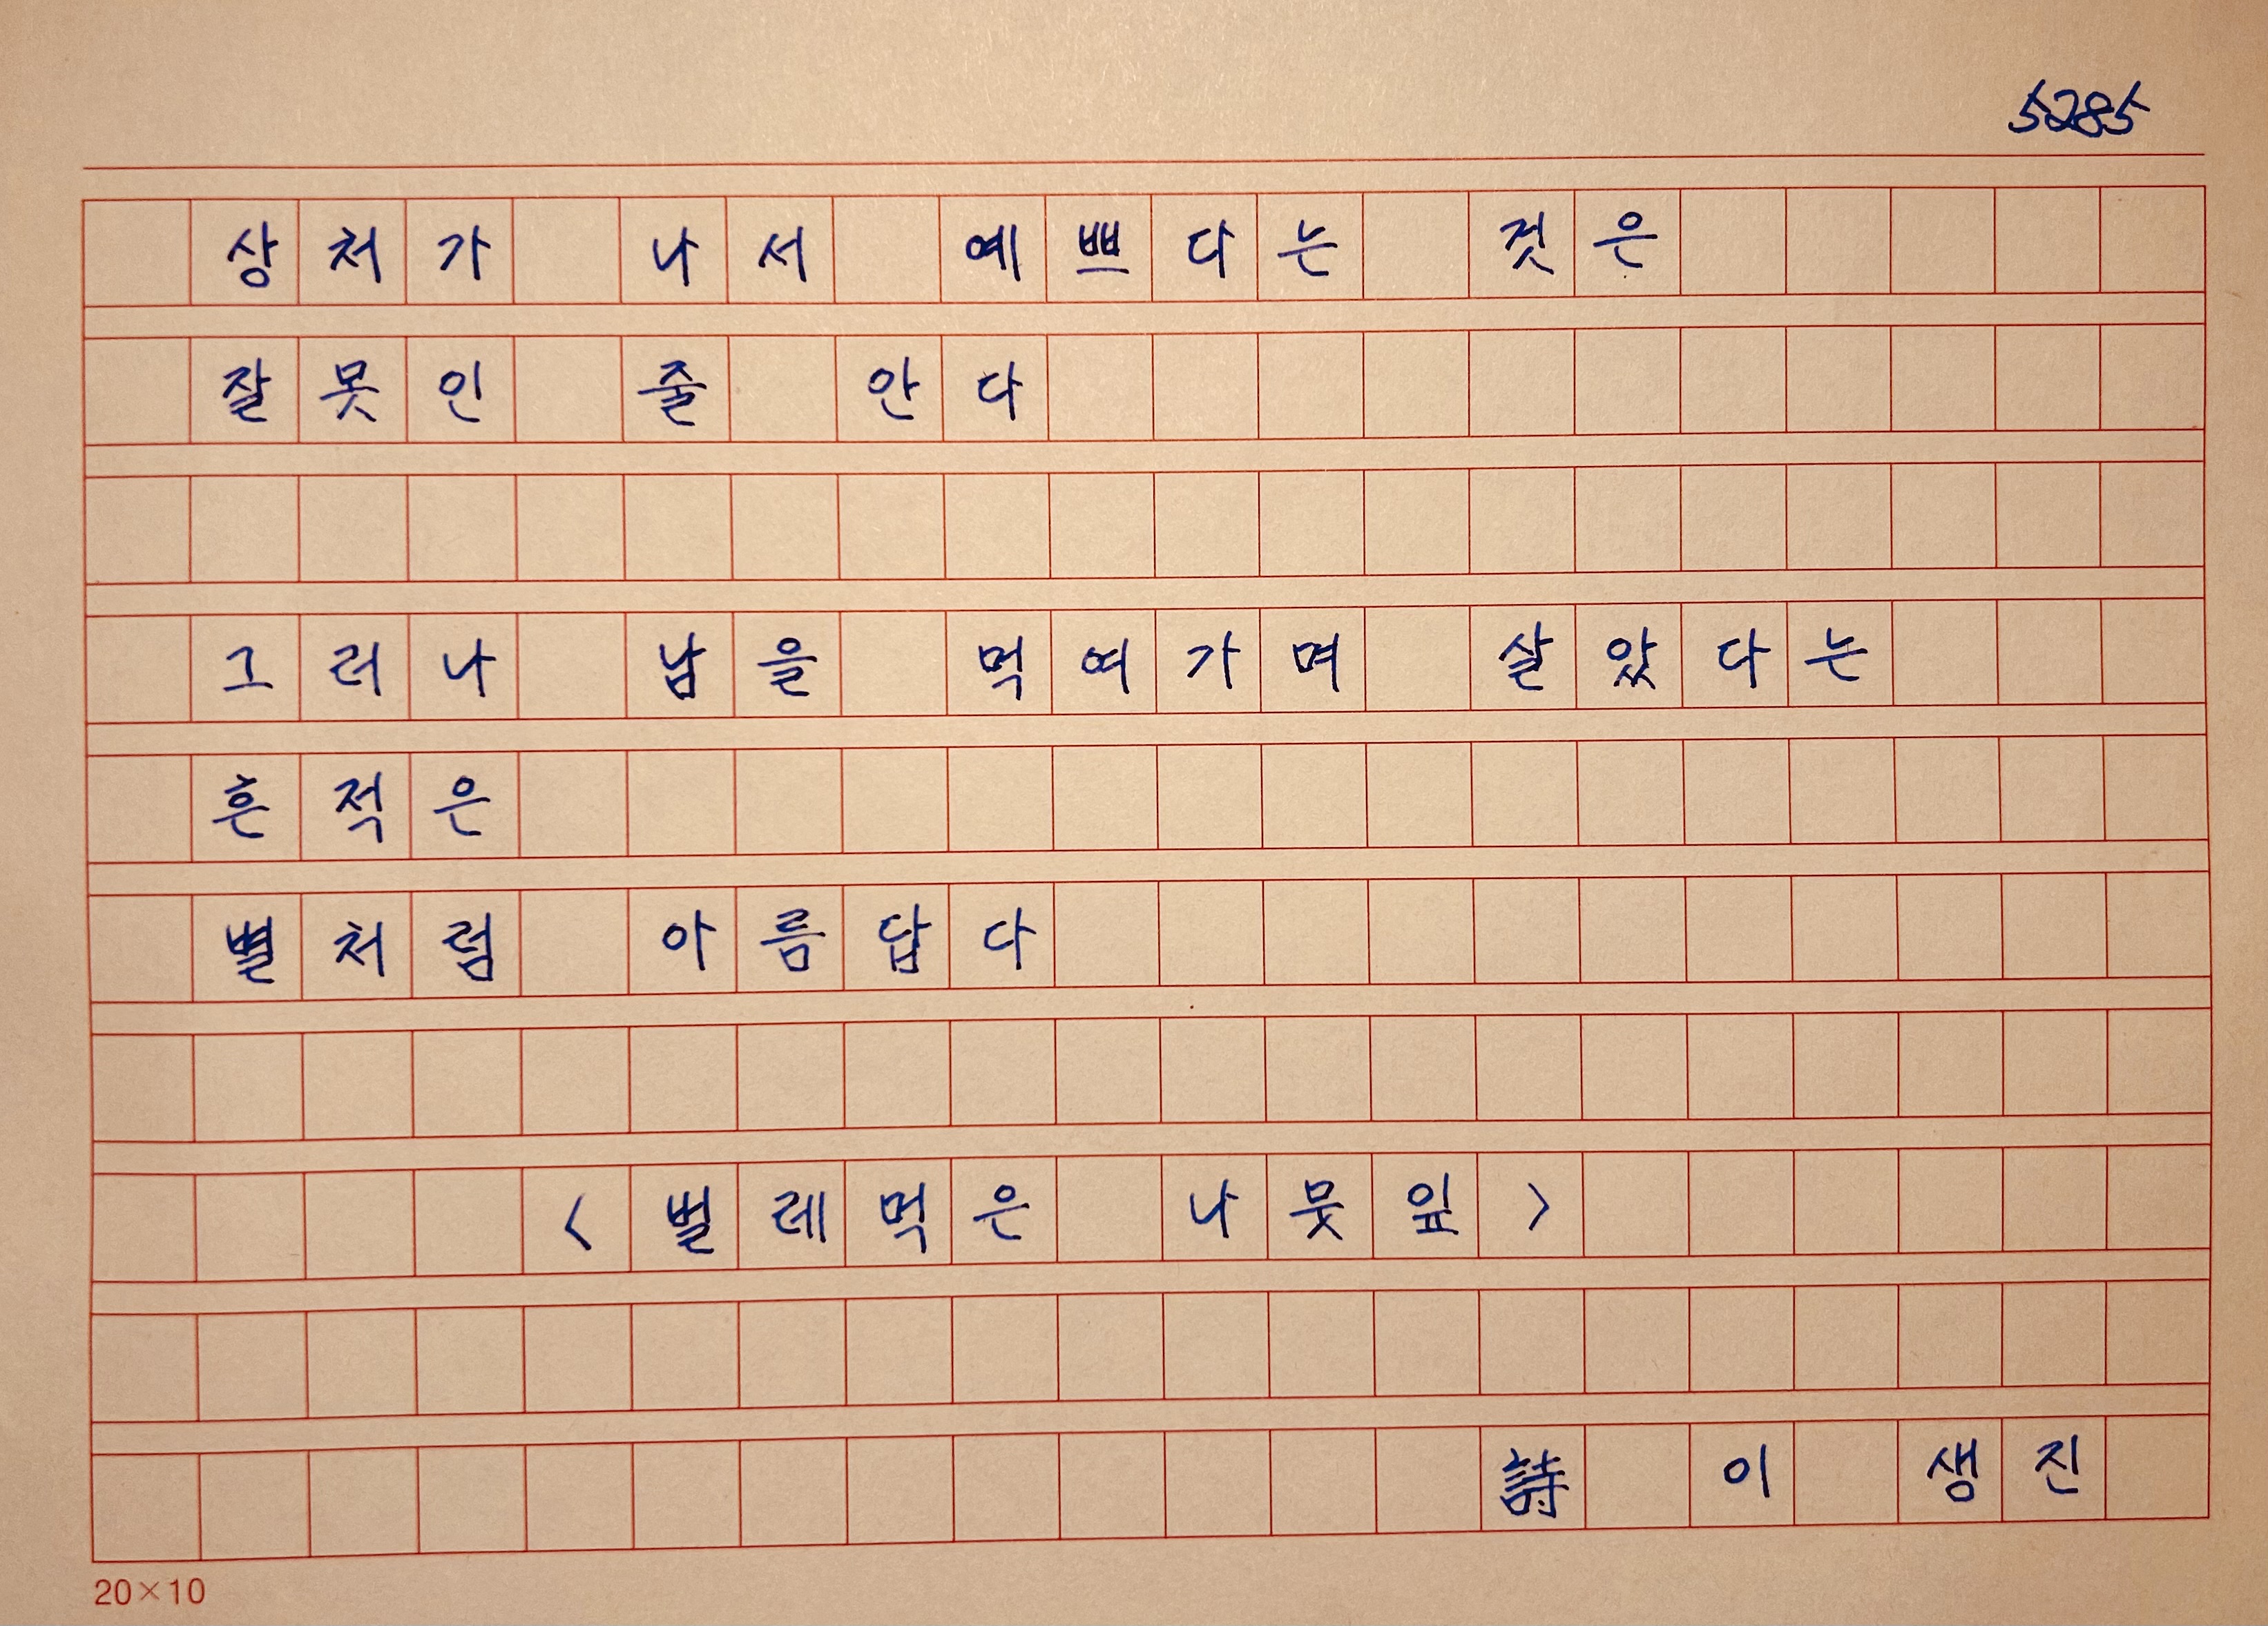 5285
상처가 나서 예쁘다는 것은
잘못인 줄 안다
그러나 남을 먹여가며 살았다는
흔적은
별처럼 아름답다
<벌레먹은 나뭇잎>
詩 이 생진
20×10